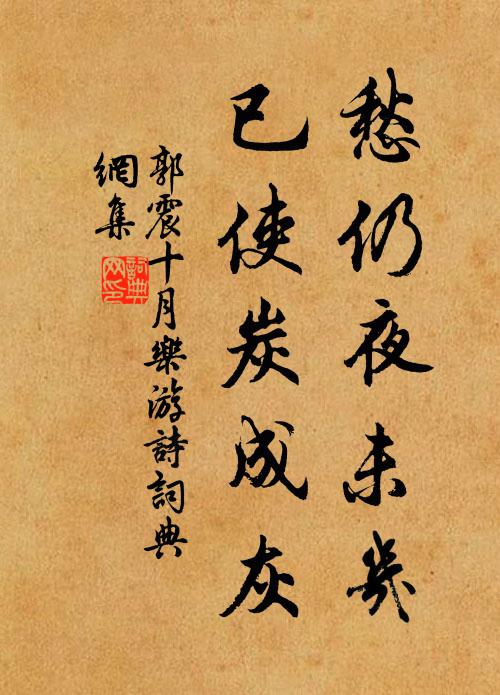 愁仍夜未幾
已使炭成灰
郭震十月樂游詩詞典
網集
詞典網印